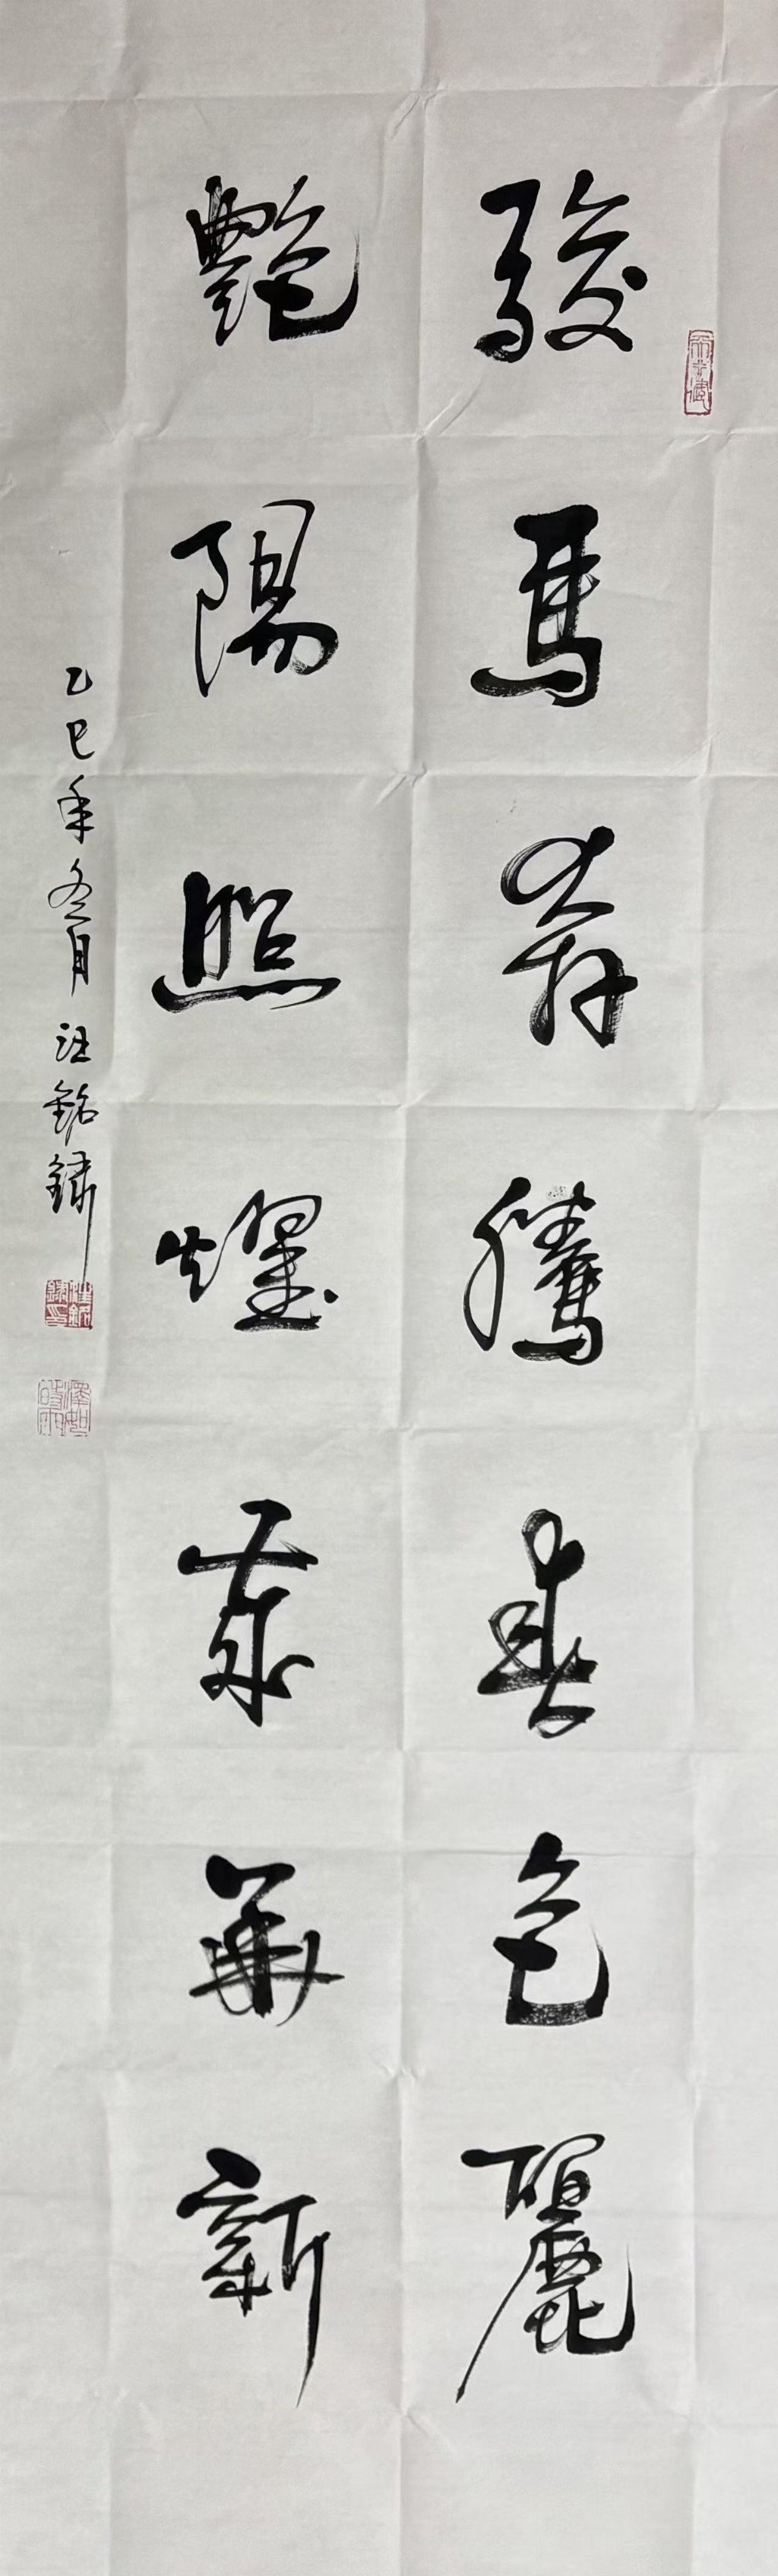 駿馬奔騰春色麗
艷陽照耀歲華新
乙巳年冬月 汪銘鏽